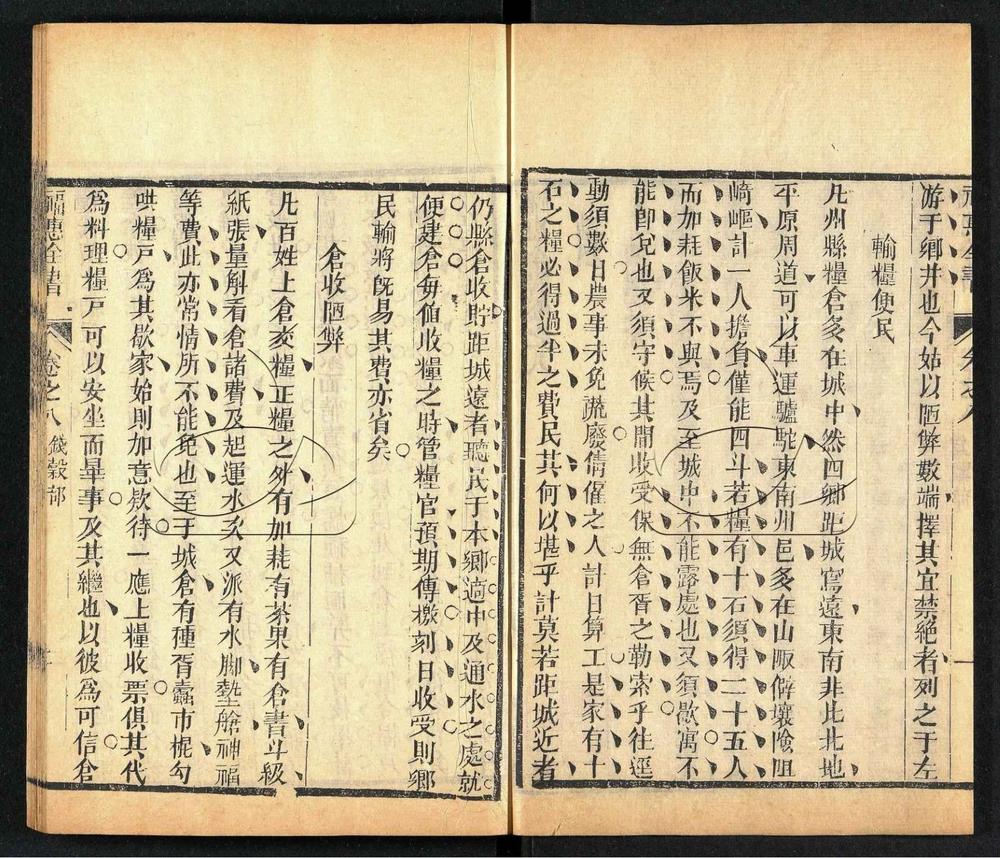 游于鄉井也今姑以陋弊數端擇其宜禁絕者列之于左
輸糧便民
凡州縣糧倉多在城中然四鄉距城寫遠東南非比北地
平原周道可以車運驢駝東南州邑多在山陬僻壤險阻
崎嶇計一人擔負僅能四斗若糧有十石須得二十五人
而加耗飯米不與焉及至城中不能露處也又須歇寓不
能卽兌也又須守候其開收受保無倉胥之勒索乎往逕
動須數日農事未免疏廢倩僱之人計日算工是家有十
石之糧必得過半之費民其何以堪乎計莫若距城近者
仍縣倉收貯距城遠者聽民于本鄉適中及通水之處就
便建倉每値收糧之時管糧官預期傳檄刻日收受則鄉
民輸將旣易其費亦省矣
倉收陋弊
凡百姓上倉交糧正糧之外有加耗有茶果有倉書斗級
紙張量斛看倉諸費及起運水次又派有水腳墊艙神福
等費此亦常情所不能免也至于城倉有種胥蠹市棍勾
哄糧戶爲其歇家始則加意欵待一應上糧收票俱其代
爲料理糧戸可以安坐而畢事及其繼也以彼爲可信倉
福惠全書 卷之八 錢穀部